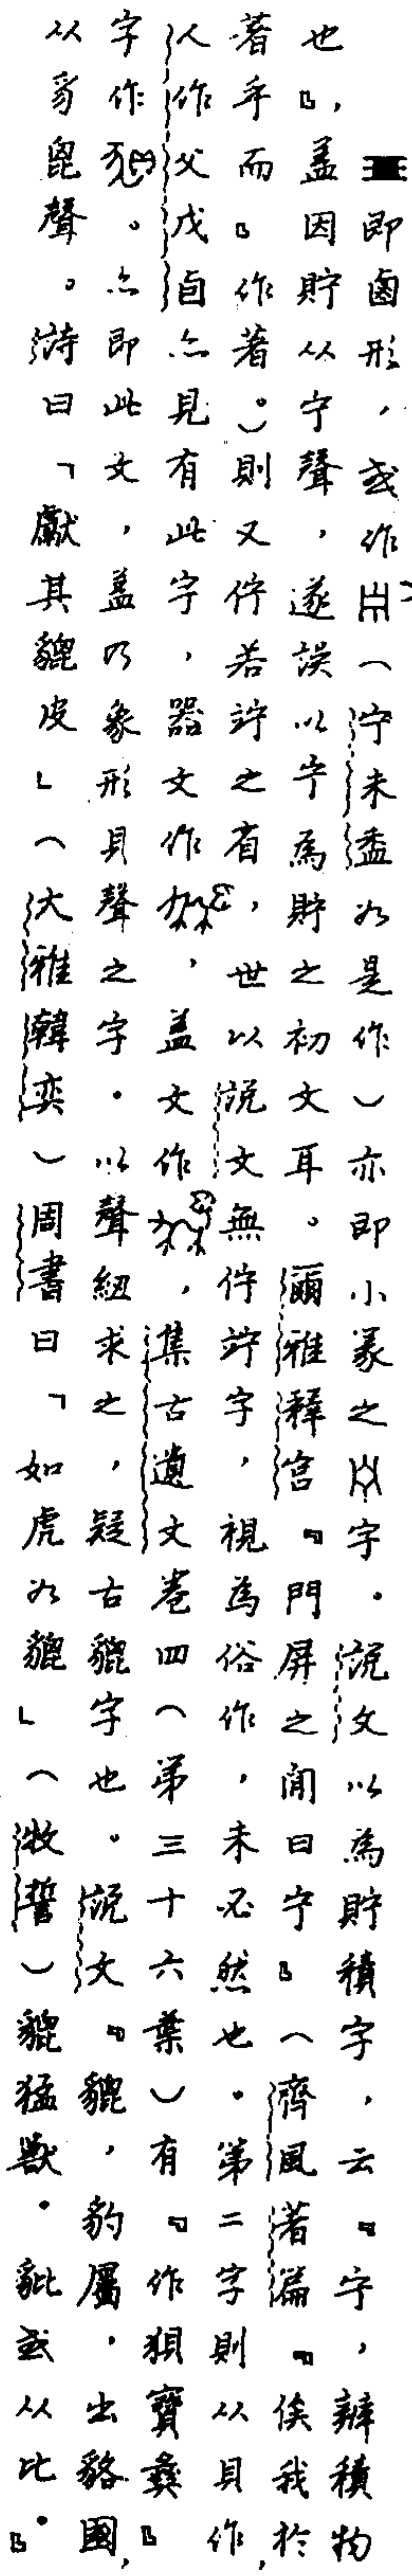 即鹵形，或作（宁未盉如是作）亦即小篆之字．說文以為貯積字，云『宁，辨積物
也』，蓋因貯从宁聲，遂誤以宁為貯之初文耳。爾雅釋宮『門屏之間曰宁』（齊風著篇『俟我於
著乎而』作著。）則又佇若竚之省，世以說文無佇竚字，視為俗作，未必然也．第二字則从貝作，
人作父戊卣亦見有此字，器文作，蓋文作，集古遺文卷四（第三十六葉）有『作狽寶彝』，
字作。亦即此文，蓋乃象形貝聲之字．以聲紐求之，疑古貔字也。說文『貔，豹屬，出貉國，
从豸毘聲。詩曰「獻其貔皮」（大雅韓奕）周書曰「如虎如貔」（牧誓）貔猛獸．豼或从比．』